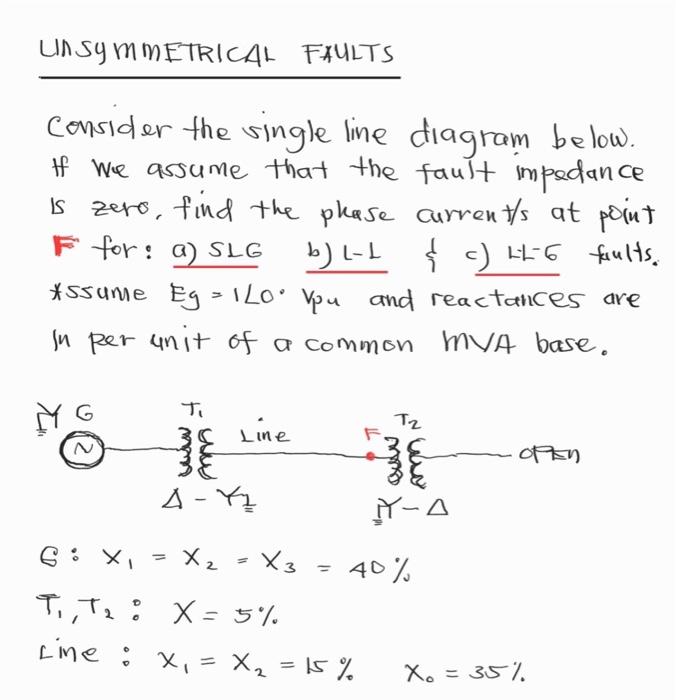 UNSYMMETRICAL FAULTS
Consider the single line diagram below.
If we assume that the fault impedance
is zero, find the phase current/s at point
F for: a) SLG b) L-L & c) LL-G faults.
Assume Eg = 1∠0° Vpu and reactances are
in per unit of a common MVA base.
Y G T1 Line F T2
N OPEN
Δ - Y Y - Δ
G: X1 = X2 = X3 = 40%
T1, T2: X = 5%
Line: X1 = X2 = 15% X0 = 35%